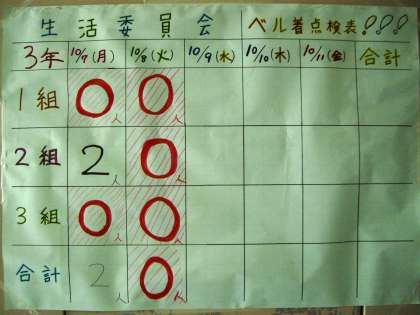 生活委員会 ベル着点検表!!!
3年 10/7(月) 10/8(火) 10/9(水) 10/10(木) 10/11(金) 合計
1組 0人 0人
2組 2人 0人
3組 0人 0人
合計 2人 0人